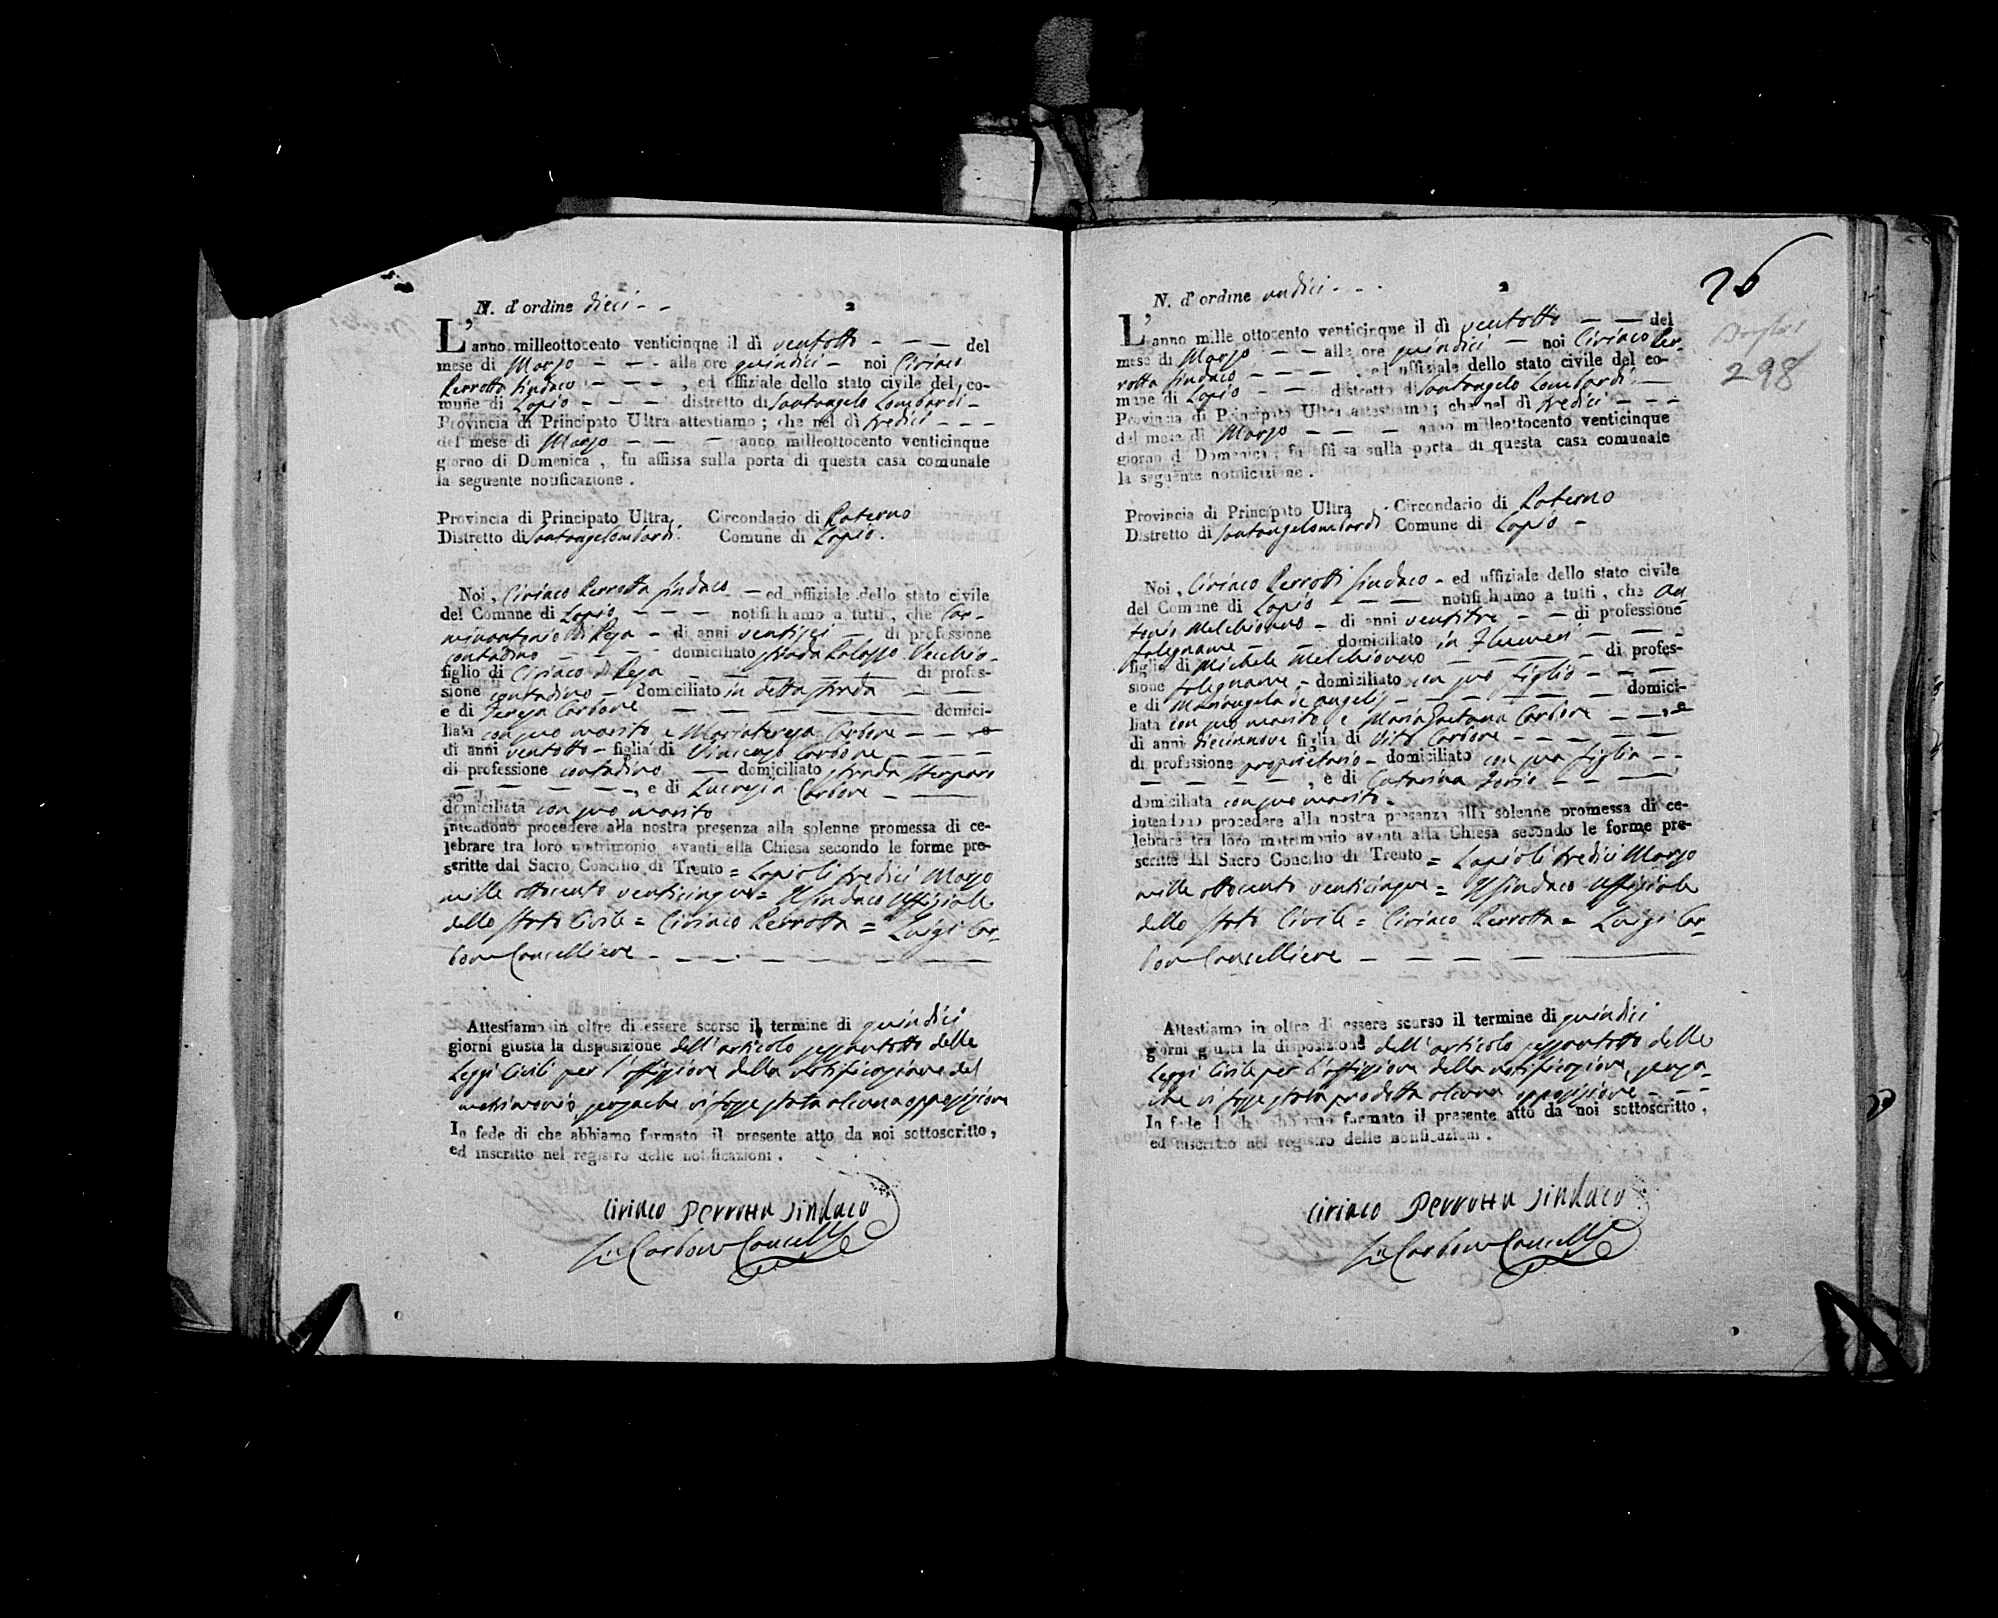 N. d'ordine dieci - -
2
L'anno milleottocento venticinque il dì ventotto - - - del
mese di Marzo - - - alle ore quindici - noi Ciriaco
Perrotta Sindaco - - - , ed uffiziale dello stato civile del co-
mune di Lapio - - - distretto di Santangelo Lombardi -
Provincia di Principato Ultra attestiamo ; che nel dì tredici - - -
del mese di Marzo - - - anno milleottocento venticinque
giorno di Domenica , fu affissa sulla porta di questa casa comunale
la seguente notificazione .
Provincia di Principato Ultra Circondario di Paterno
Distretto di Santangelombardi. Comune di Lapio.
Noi , Ciriaco Perrotta Sindaco - ed uffiziale dello stato civile
del Comune di Lapio - - - notifichiamo a tutti , che Car-
minantonio di Peza - di anni ventisei - di professione
contadino - - - domiciliato strada Palazzo Vecchio -
figlio di Ciriaco di Peza - - - di profes-
sione contadino - domiciliato in detta strada - -
e di Tereza Carbone - - - domici-
liata con suo marito e Mariatereza Carbone - - -
di anni ventotto - figlia di Vincenzo Carbone - - - -
di professione contadino - domiciliato strada
- - - - - , e di Lucrezia Carbone - -
domiciliata con suo marito
intendono procedere alla nostra presenza alla solenne promessa di ce-
lebrare tra loro matrimonio avanti alla Chiesa secondo le forme pre-
scritte dal Sacro Concilio di Trento = Lapio li tredici Marzo
mille ottocento venticinque = Il Sindaco Uffiziale
dello Stato Civile = Ciriaco Perrotta = Luigi Car-
bone Cancelliere - - - - - -
Attestiamo in oltre di essere scorso il termine di quindici
giorni giusta la disposizione dell'articolo sessantotto delle
Leggi Civili per l'affizione della notificazione del
matrimonio, senzache vi fosse stata alcuna opposizione
In fede di che abbiamo formato il presente atto da noi sottoscritto ,
ed inscritto nel registro delle notificazioni .
Ciriaco Perrotta Sindaco
Carbone Cancell
26
298
N. d'ordine undici - - -
2
L'anno mille ottocento venticinque il dì ventotto - - del
mese di Marzo - - alle ore quindici - noi Ciriaco Per-
rotta Sindaco - - - - , ed uffiziale dello stato civile del co-
mune di Lapio - - distretto di Santangelo Lombardi -
Provincia di Principato Ultra attestiamo ; che nel dì tredici - - -
del mese di Marzo - - - anno milleottocento venticinque
giorno di Domenica , fu affissa sulla porta di questa casa comunale
la seguente notificazione .
Provincia di Principato Ultra Circondario di Paterno
Distretto di Santangelombardi Comune di Lapio -
Noi , Ciriaco Perrotti Sindaco - ed uffiziale dello stato civile
del Comune di Lapio - - - notifichiamo a tutti , che An
tonio Melchionno - di anni ventitre - - di professione
falegname - - domiciliato in Flumeri - - -
figlio di Michele Melchionno - - - - di profes-
sione falegname - domiciliato con suo figlio - -
e di Mariangela de Angelis - - - - domici-
liata con suo marito, e Maria Gaetana Carbone - -, e
di anni diecinnove figlia di Vito Carbone - - - - -
di professione proprietario - domiciliato con sua figlia - -
- - - - - , e di Catarina - -
domiciliata con suo marito -
intendono procedere alla nostra presenza alla solenne promessa di ce-
lebrare tra loro matrimonio avanti alla Chiesa secondo le forme pre-
scritte dal Sacro Concilio di Trento = Lapio li tredici Marzo
mille ottocento venticinque = Il Sindaco Uffiziale
dello Stato Civile = Ciriaco Perrotta = Luigi Car-
bone Cancelliere - - - -
Attestiamo in oltre di essere scorso il termine di quindici
giorni giusta la disposizione dell'articolo sessantotto delle
Leggi Civili per l'affizione della notificazione, senza-
che vi fosse stata prodotta alcuna opposizione - - -
In fede di che abbiamo formato il presente atto da noi sottoscritto ,
ed inscritto nel registro delle notificazioni .
Ciriaco Perrotta Sindaco
Carbone Cancell